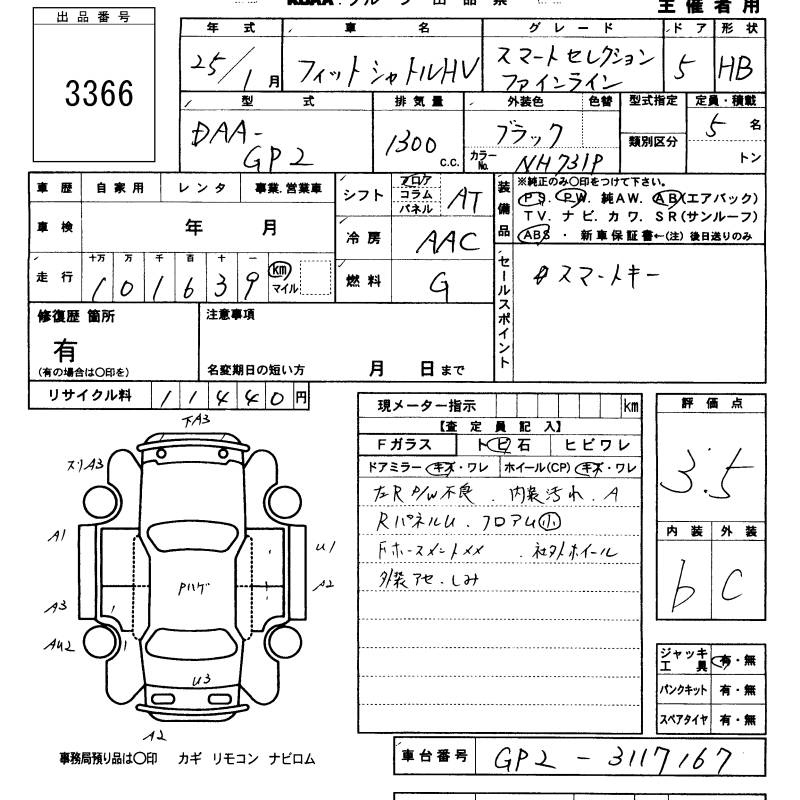 主催者用
出品番号
3366
年式 車名 グレード ドア 形状
25/1月 フィットシャトルHV スマートセレクション ファインライン 5 HB
型式 排気量 外装色 色替 型式指定 定員・積載
DAA-GP2 1300 c.c. ブラック 類別区分 5名
カラーNo. NH731P トン
車歴 自家用 レンタ 事業.営業車
車検 年 月
走行 十万 万 千 百 十 一
1 0 1 6 3 9 km マイル
シフト フロア コラム パネル AT
冷房 AAC
燃料 G
装備品 ※純正のみ○印をつけて下さい。
P S. P W. 純AW. A B(エアバック)
T V. ナビ. カワ. S R(サンルーフ)
ABS ・ 新車保証書←(注) 後日送りのみ
セールスポイント
スマートキー
修復歴 箇所
有
(有の場合は○印を)
注意事項
名変期日の短い方 月 日まで
リサイクル料 1 1 4 4 0 円
下A3
スリA3
A1
A3
AU2
U1
A2
Pハゲ
U3
A2
事務局預り品は○印 カギ リモコン ナビロム
現メーター指示 km
【査定員記入】
Fガラス トビ石 ヒビワレ
ドアミラー キズ・ワレ ホイール(CP) キズ・ワレ
左R P/W不良 . 内装汚れ . A
RパネルU . フロアム 小
Fホースメントメメ . 社外ホイール
外装アセ . しみ
評価点
3.5
内装 外装
b C
ジャッキ工具 有・無
パンクキット 有・無
スペアタイヤ 有・無
車台番号 GP2 - 3117167